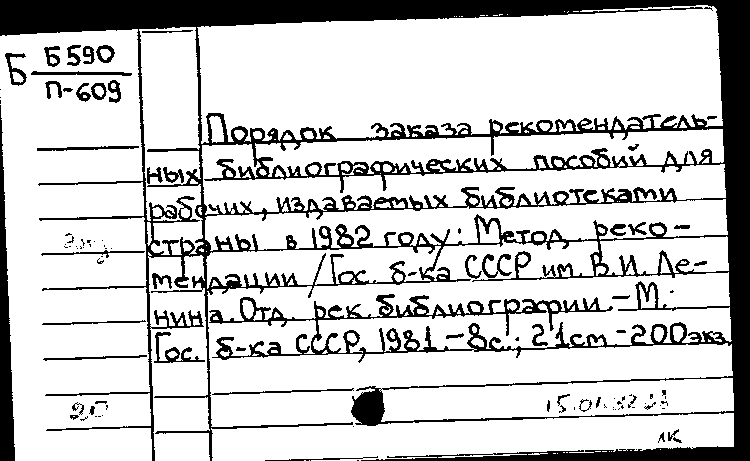 Б Б590
П-609
Порядок заказа рекомендатель-
ных библиографических пособий для
рабочих, издаваемых библиотеками
страны в 1982 году: Метод. реко-
мендации / Гос. б-ка СССР им. В.И. Ле-
нина. Отд. рек. библиографии. - М.:
Гос. б-ка СССР, 1981. - 8с.; 21см - 200экз.
20
15.01.82
лк